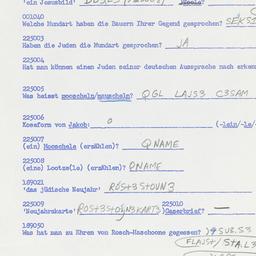 001040
Welche Mundart haben die Bauern Ihrer Gegend gesprochen?
225003
Haben die Juden die Mundart gesprochen? JA
225004
Hat man können einen Juden seiner deutschen Aussprache nach erken
225005
Was heisst mooscheln/mauscheln? QGL LAJS3 C3SAM
225006
Koseform von Jakob: o (-lein/-le/
225007
(ein) Mooschele (erzählen)? QNAME
225008
(eine) Lootze(le) (erzählen)? QNAME
189021
'das jüdische Neujahr' RÓST3STOVN3
225009 225010
'Neujahrskarte' Gaserbrief? —
189050
Was hat man zu Ehren von Rosch-Haschoone gegessen?